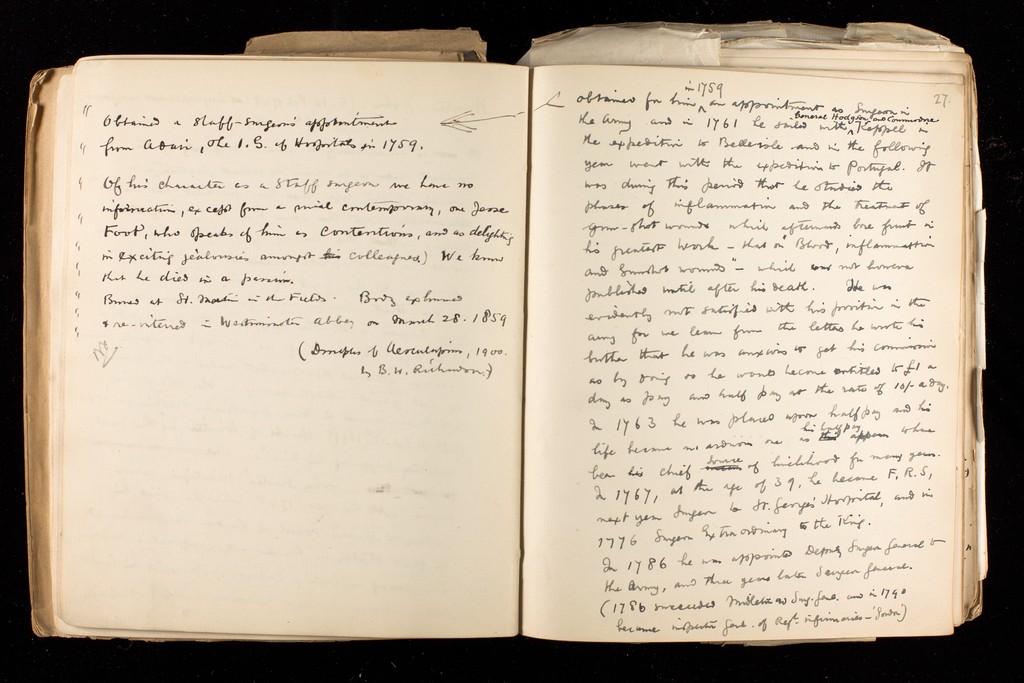 Obtained a Staff-Surgeon's appointment
from Adair, the I.G. of Hospitals in 1759.
Of his character as a Staff Surgeon we have no
information, except from a rival contemporary, one Jesse
Foot, who speaks of him as contentious, and as delighting
in exciting jealousies amongst his colleagues) We know
that he died in a passion.
Buried at St. Martin in the Fields. Body exhumed
& re-interred in Westminster Abbey on March 28. 1859
(Disciples of Aesculapius, 1900.
by B. W. Richardson.)
27.
in 1759
obtained for him an appointment as Surgeon in
General Hodgson and Commodore
the Army and in 1761 he sailed with Keppell in
the expedition to Belleisle and in the following
year went with the expedition to Portugal. It
was during this period that he studied the
phases of inflammation and the treatment of
gun-shot wounds which afterwards bore fruit in
his greatest work - that on Blood, inflammation
and Gunshot wounds" - which was not however
published until after his death. He was
evidently not satisfied with his position in the
army for we learn from the letters he wrote his
brother that he was anxious to get his commission
as by doing so he would become entitled to £1 a
day as pay and half pay at the rate of 10/- a day.
In 1763 he was placed upon half pay and his
his half pay
life became an arduous one as this appears to have
source
been his chief of livelihood for many years.
In 1767, at the age of 39, he became F.R.S,
next year Surgeon to St. George's Hospital, and in
1776 Surgeon Extraordinary to the King.
In 1786 he was appointed Deputy Surgeon General to
the Army, and three years later Surgeon General.
(1786 succeeded Middleton as Surg. Genl. and in 1790
became inspector Genl. of Regtl. infirmaries -